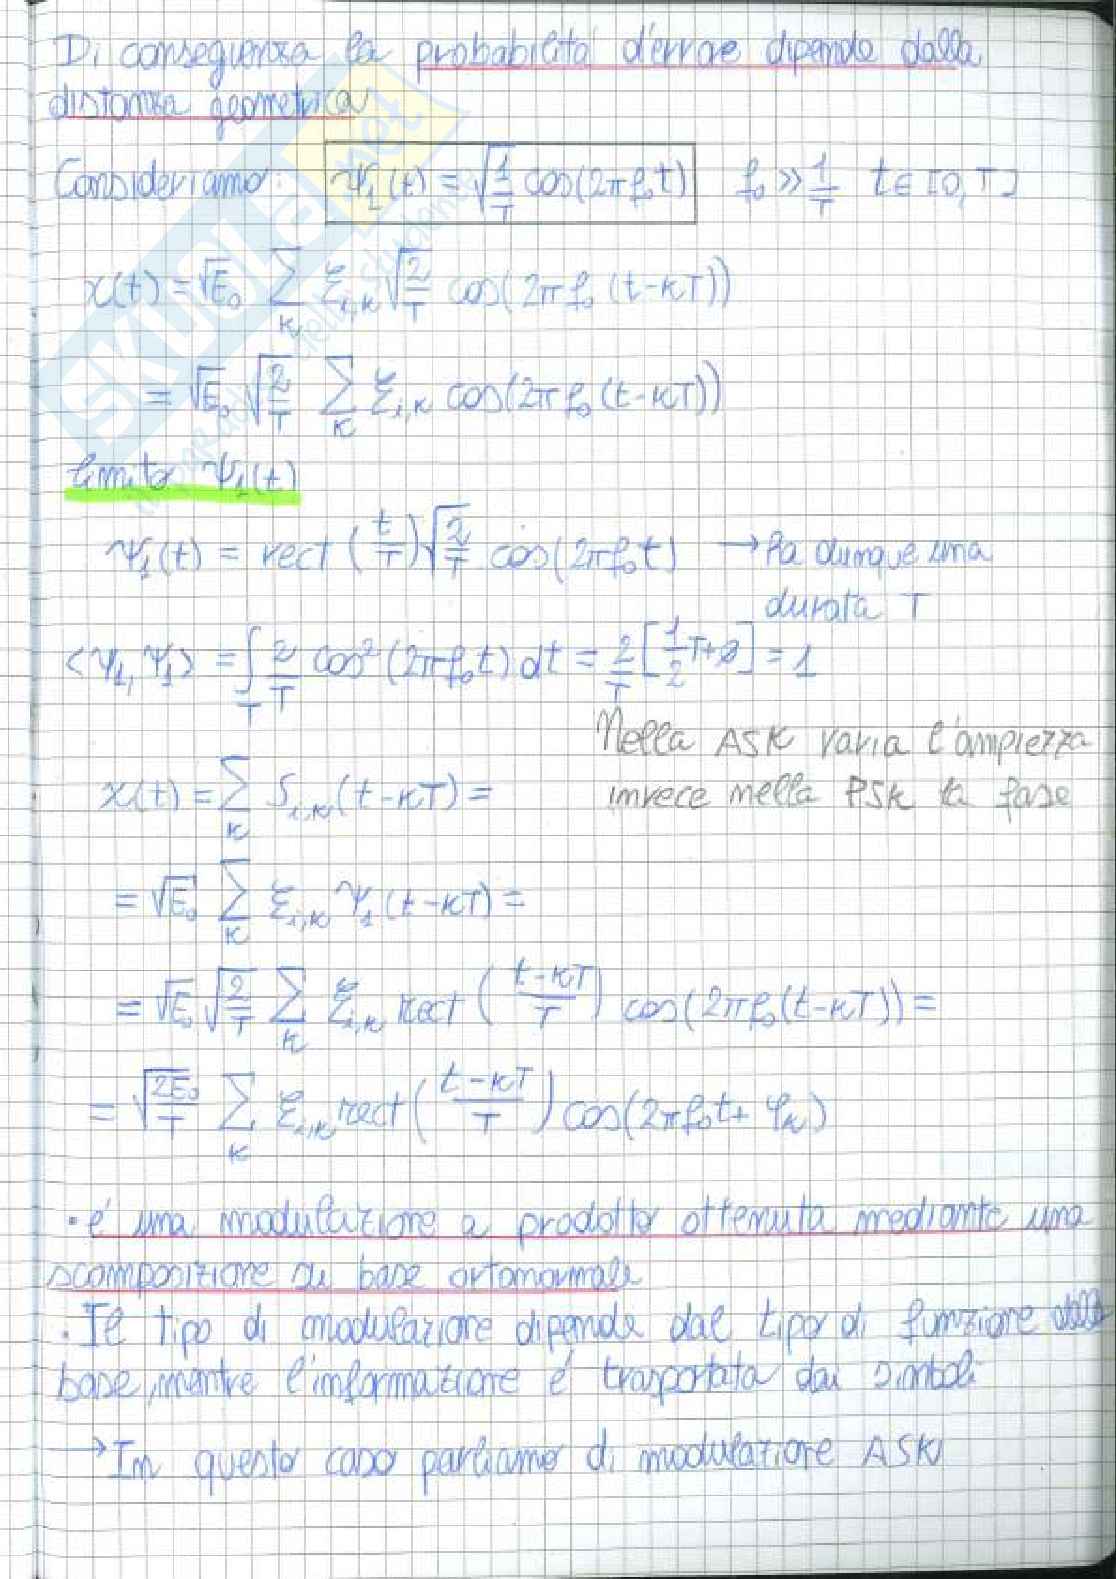 Di conseguenza la probabilità d'errore dipende dalla
distanza geometrica
Consideriamo: ψ₁(t) = √(1/T) cos(2πf₀t) f₀ >> 1/T t ∈ [0,T]
x(t) = √E₀ ∑_k ξ_{i,k} √(2/T) cos(2πf₀(t-kT))
= √E₀ √(2/T) ∑_k ξ_{i,k} cos(2πf₀(t-kT))
limito ψ₁(t)
ψ₁(t) = rect(t/T) √(2/T) cos(2πf₀t) → ha dunque una
durata T
<ψ₁,ψ₁> = ∫_T 2/T cos²(2πf₀t) dt = 2/T [1/2 T + ø] = 1
Nella ASK varia l'ampiezza
invece nella PSK la fase
x(t) = ∑_k S_{i,k}(t-kT) =
= √E₀ ∑_k ξ_{i,k} ψ₁(t-kT) =
= √E₀ √(2/T) ∑_k ξ_{i,k} rect((t-kT)/T) cos(2πf₀(t-kT)) =
= √(2E₀/T) ∑_k ξ_{i,k} rect((t-kT)/T) cos(2πf₀t + φ_k)
• é una modulazione a prodotto ottenuta mediante una
scomposizione su base ortonormale
. Il tipo di modulazione dipende dal tipo di funzione della
base, mentre l'informazione é trasportata dai simboli
→ In questo caso parliamo di modulazione ASK
SKUOLA.net